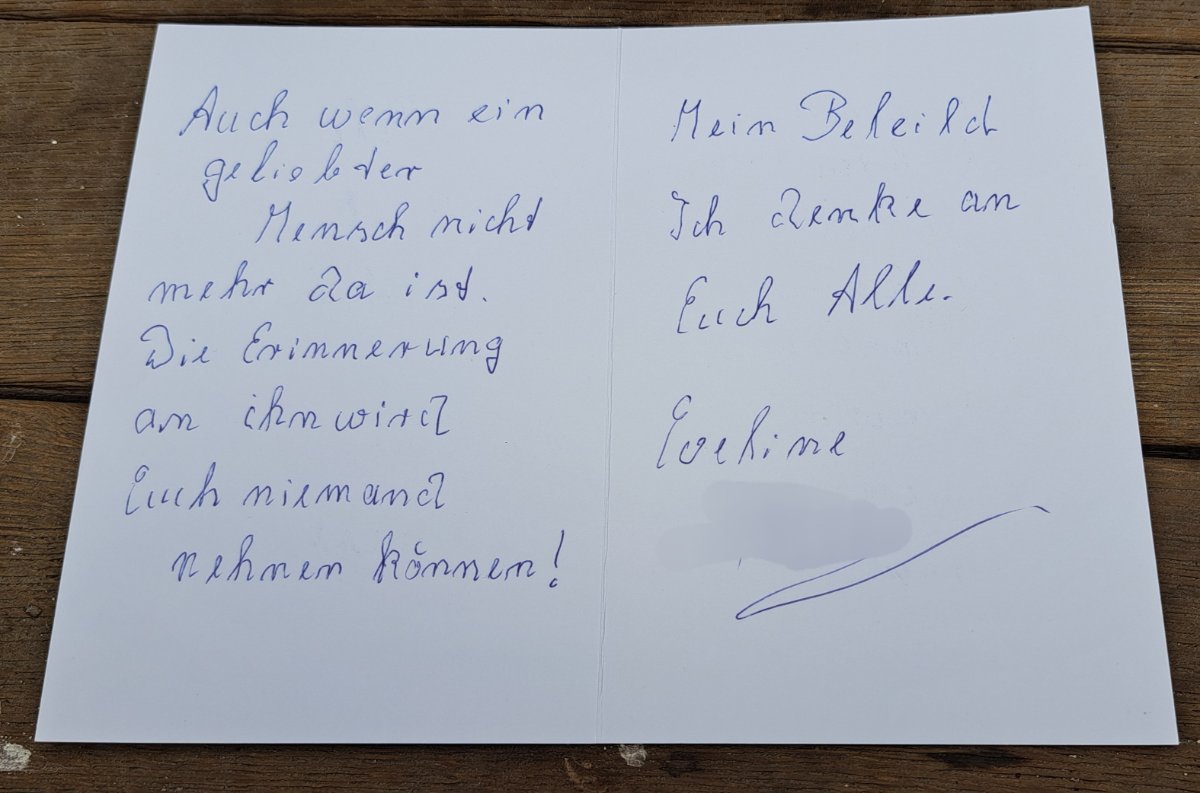 Auch wenn ein
geliebter
Mensch nicht
mehr da ist.
Die Erinnerung
an ihn wird
Euch niemand
nehmen können!
Mein Beileid
Ich denke an
Euch Alle.
Eveline